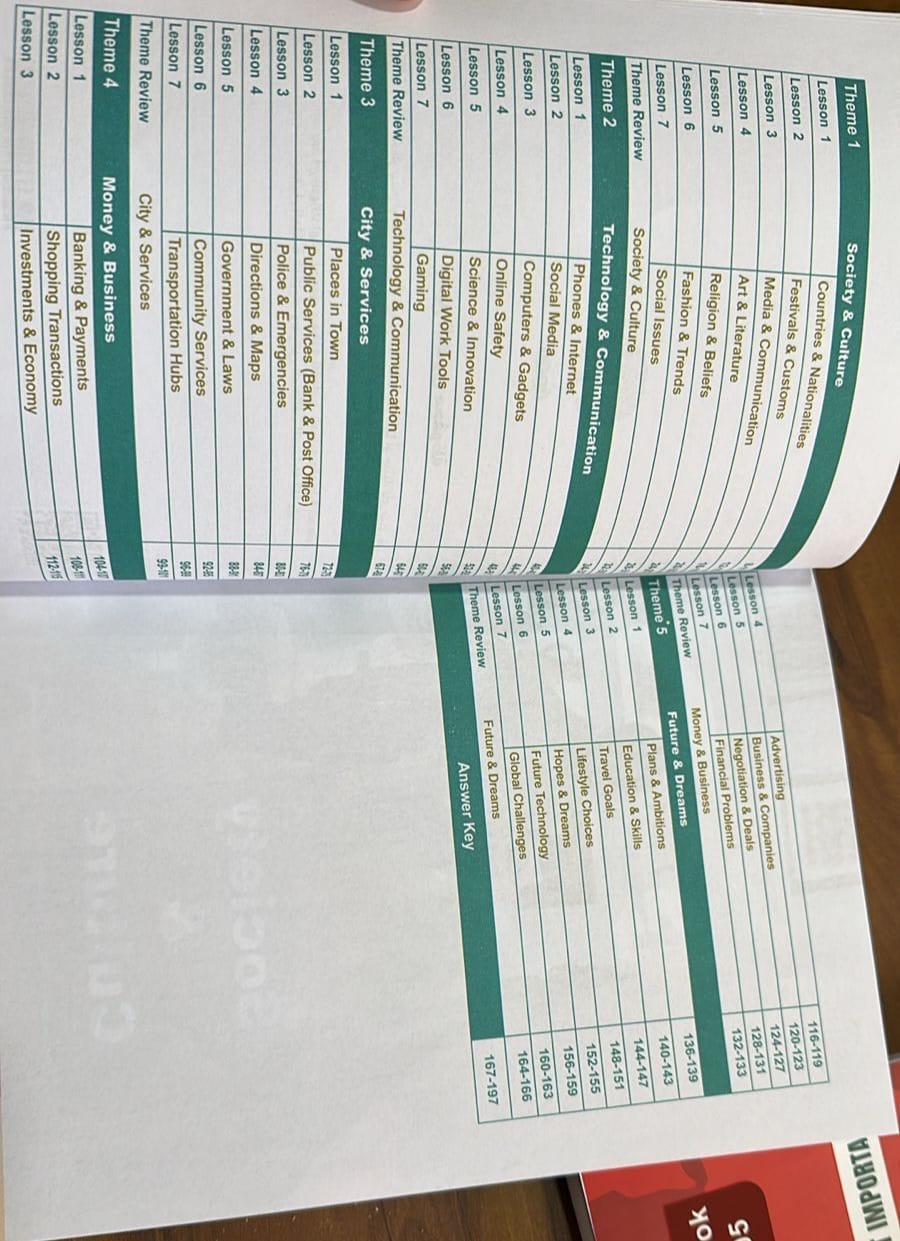 Theme 1 Society & Culture
Lesson 1 Countries & Nationalities
Lesson 2 Festivals & Customs
Lesson 3 Media & Communication
Lesson 4 Art & Literature
Lesson 5 Religion & Beliefs
Lesson 6 Fashion & Trends
Lesson 7 Social Issues
Theme Review Society & Culture
Theme 2 Technology & Communication
Lesson 1 Phones & Internet
Lesson 2 Social Media
Lesson 3 Computers & Gadgets
Lesson 4 Online Safety
Lesson 5 Science & Innovation
Lesson 6 Digital Work Tools
Lesson 7 Gaming
Theme Review Technology & Communication
Theme 3 City & Services
Lesson 1 Places in Town
Lesson 2 Public Services (Bank & Post Office)
Lesson 3 Police & Emergencies
Lesson 4 Directions & Maps
Lesson 5 Government & Laws
Lesson 6 Community Services
Lesson 7 Transportation Hubs
Theme Review City & Services
Theme 4 Money & Business
Lesson 1 Banking & Payments 104-107
Lesson 2 Shopping Transactions 108-111
Lesson 3 Investments & Economy 112-115
Lesson 4 Advertising 116-119
Lesson 5 Business & Companies 120-123
Lesson 6 Negotiation & Deals 124-127
Lesson 7 Financial Problems 128-131
Theme Review Money & Business 132-133
Theme 5 Future & Dreams
Lesson 1 Plans & Ambitions 136-139
Lesson 2 Education & Skills 140-143
Lesson 3 Travel Goals 144-147
Lesson 4 Lifestyle Choices 148-151
Lesson 5 Hopes & Dreams 152-155
Lesson 6 Future Technology 156-159
Lesson 7 Global Challenges 160-163
Theme Review Future & Dreams 164-166
Answer Key 167-197
IMPORTA
5
ok